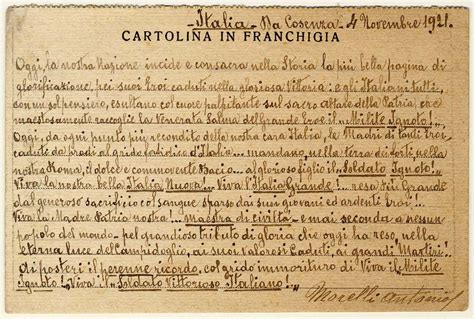 -Italia - Da Cosenza - 4 Novembre 1921.
CARTOLINA IN FRANCHIGIA
Oggi, la nostra Nazione incide e consacra nella Storia la più bella pagina di
glorificazione, pei suoi Eroi caduti nella gloriosa Vittoria: e gli Italiani tutti,
con un sol pensiero, esultano col cuore palpitante sul sacro altare della Patria, che
maestosamente raccoglie la Venerata Salma del Grande Eroe il "Milite Ignoto!..
Oggi, da ogni punto più recondito della nostra cara Italia, le Madri di tanti Eroi
caduti da prodi al grido fatidico d'Italia... mandano, nella terra dei forti, nella
nostra Roma, il dolce e commovente Bacio... al glorioso figlio il "Soldato Ignoto!"
Viva la nostra bella "Italia Nuova"... Viva l'Italia Grande!.. resa più Grande
dal generoso sacrificio col sangue sparso dai suoi giovani ed ardenti Eroi!..
Viva la Madre Patria nostra!... "maestra di civiltà" e mai seconda a nessun
popolo del mondo - pel grandioso tributo di gloria che oggi ha reso, nella
eterna luce del Campidoglio, ai suoi Valorosi Caduti, ai grandi Martiri!..
di posteri il perenne ricordo, col grido imperituro di Viva il "Milite
Ignoto" - Viva! il "Soldato Vittorioso Italiano!..
Morelli Antonio